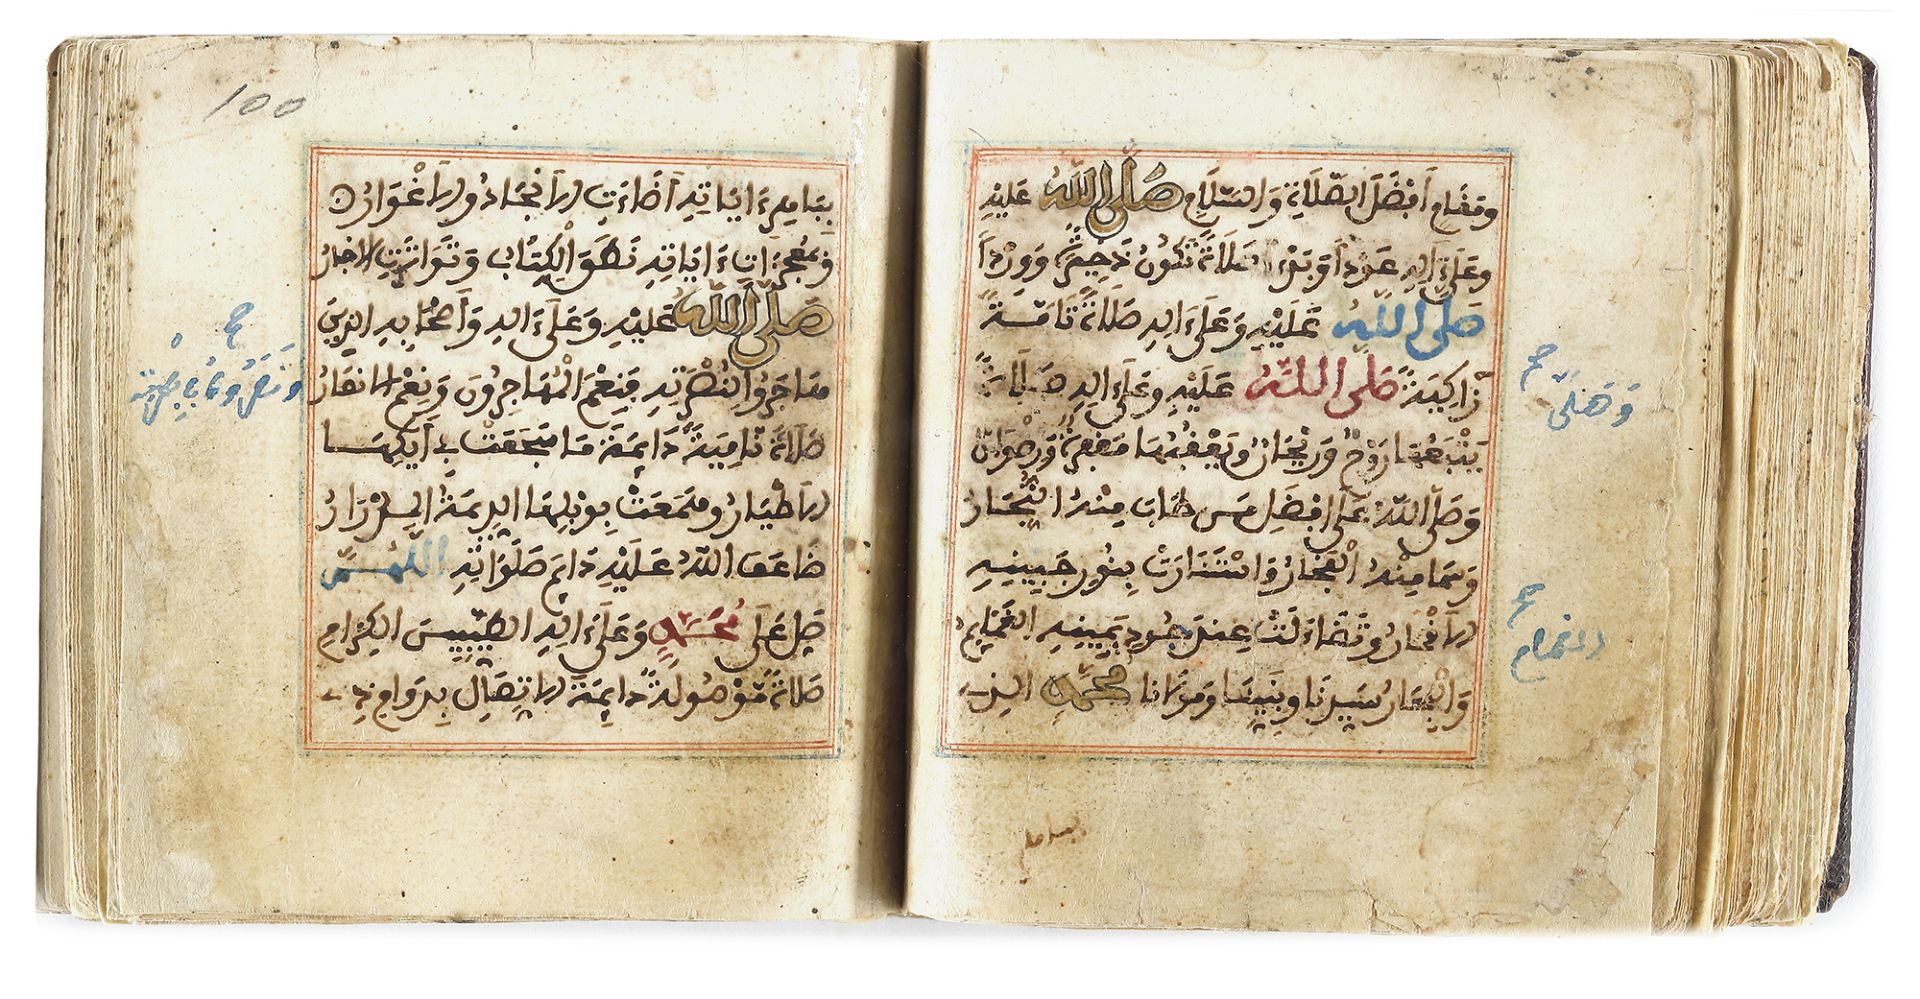 ومقام أفضل الصلاة والسلام صلى الله عليه
وعلى ءاله عودا وبدءا صلاة تكون ذخيرة ووردا
صلى الله عليه وعلى ءاله صلاة تامة
زاكية صلى الله عليه وعلى ءاله صلاة
يتبعها روح وريحان ويعقبها مغفرة ورضوان
وصلى الله على أفضل من طاب منه النجار
وسما منه الفخار واستنارت بنور جبينه
الأقمار وتضاءلت عند جود يمينه الغمايم
والبحار سيدنا ونبينا ومولانا محمد الذي
وصلى
100
بباهر ءاياته أضاءت الأنجاد والأغوار
وبمعجزات ءاياته نطق الكتاب وتواترت الاخبار
صلى الله عليه وعلى ءاله وأصحابه الذين
هاجروا لنصرته فنعم المهاجرون ونعم الانصار
صلاة نامية دايمة ما سجعت في أيكها
الأطيار وهمعت بوبلها الديمة المدرار
ضاعف الله عليه دايم صلواته اللهم
صل على محمد وعلى ءاله الطيبين الكرام
صلاة موصولة دايمة الاتصال بدوام ذي